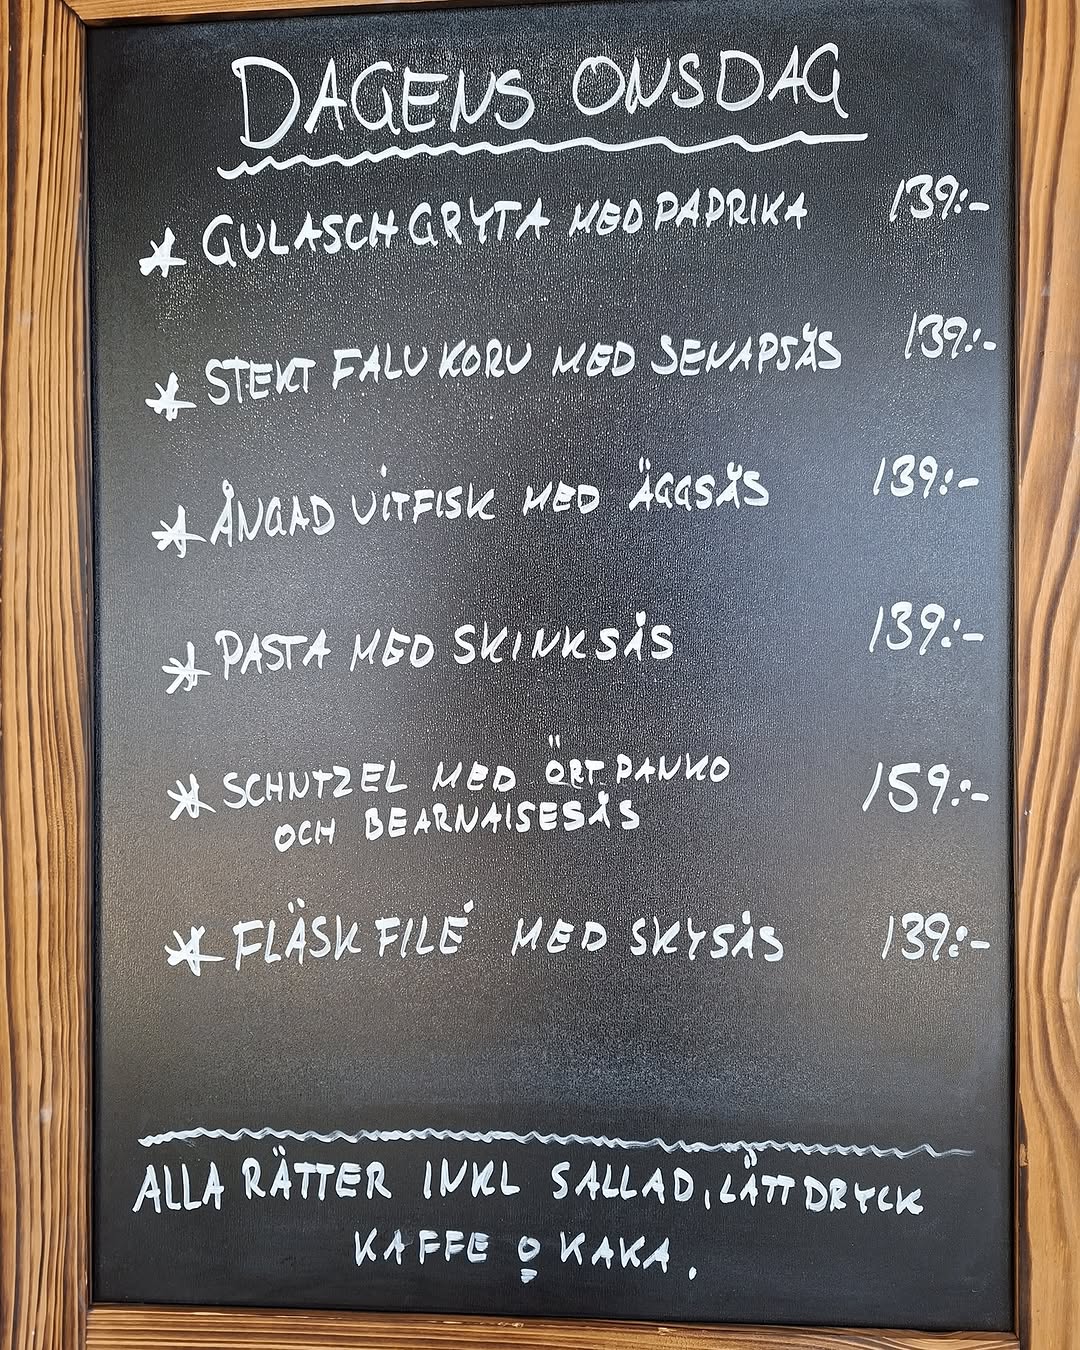 DAGENS ONSDAG
* GULASCH GRYTA MED PAPRIKA 139:-
* STEKT FALUKORV MED SENAPSÅS 139:-
* ÅNGAD VITFISK MED ÄGGSÅS 139:-
* PASTA MED SKINKSÅS 139:-
* SCHNTZEL MED ÖRT PANKO 159:-
OCH BEARNAISESÅS
* FLÄSKFILÉ MED SKYSÅS 139:-
ALLA RÄTTER INKL SALLAD, LÄTTDRYCK
KAFFE o KAKA.